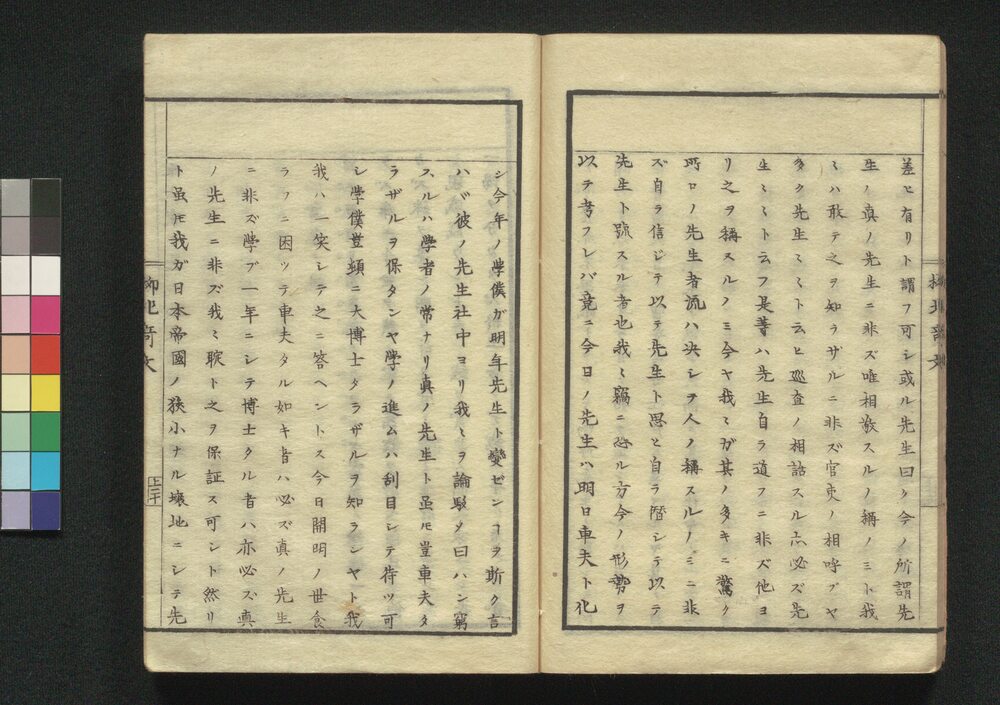 差ヒ有リト謂フ可シ或ル先生曰ク今ノ所謂先
生ノ真ノ先生ニ非ズ唯相敬スルノ稱ノミト我
ミハ敢テ之ヲ知ラザルニ非ズ官吏ノ相呼ブヤ
多ク先生ミミト云ヒ巡査ノ相詰スル亦必ズ先
生ミミト云フ是等ハ先生自ラ道フニ非ズ他ヨ
リ之ヲ稱スルノミ今ヤ我ミガ其ノ多キニ驚ク
所ロノ先生者流ハ决シテ人ノ稱スルノミニ非
ズ自ラ信ジテ以テ先生ト思ヒ自ラ僭シテ以テ
先生ト號スル者也我ミ竊ニ恐ル方今ノ形勢ヲ
以テ考フレバ竟ニ今日ノ先生ハ明日車夫ト化
シ今年ノ學僕ガ明年先生ト變ゼンヿヲ斯ク言
ハバ彼ノ先生社中ヨリ我ミヲ論駁シ曰ハン窮
スルハ學者ノ常ナリ真ノ先生ト虽モ豈車夫タ
ラザルヲ保タンヤ学ノ進ムハ刮目シテ待ツ可
シ學僕豈頓ニ大博士タラザルヲ知ランヤト我
我ハ一笑シテ之ニ答ヘントス今日開明ノ世食
ラフニ困ツテ車夫タル如キ者ハ必ズ真ノ先生
ニ非ズ學ブ一年ニシテ博士タル者ハ亦必ズ真
ノ先生ニ非ズ我ミ聢ト之ヲ保証ス可シト然リ
ト虽モ我ガ日本帝國ノ狹小ナル壤地ニシテ先
柳北奇文
上二十